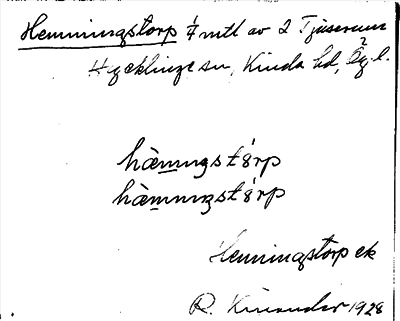 Hemmingstorp ¼ mtl av 2 Tjuserum
Hycklinge sn, Kinda hd, Ög. l.
hæmıŋstórp
hæ̀mıŋstórp
Hemmingstorp ek
R. Kinander 1928